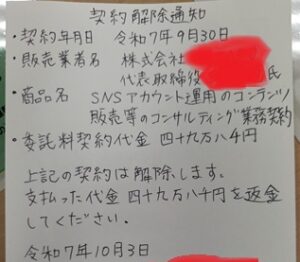 契約解除通知
・契約年月日 令和7年9月30日
・販売業者名 株式会社
代表取締役 氏
・商品名 SNSアカウント運用のコンテンツ
販売等のコンサルティング業務契約
・委託料契約代金 四十九万八千円
上記の契約は解除します。
支払った代金 四十九万八千円を返金
してください。
令和7年10月3日